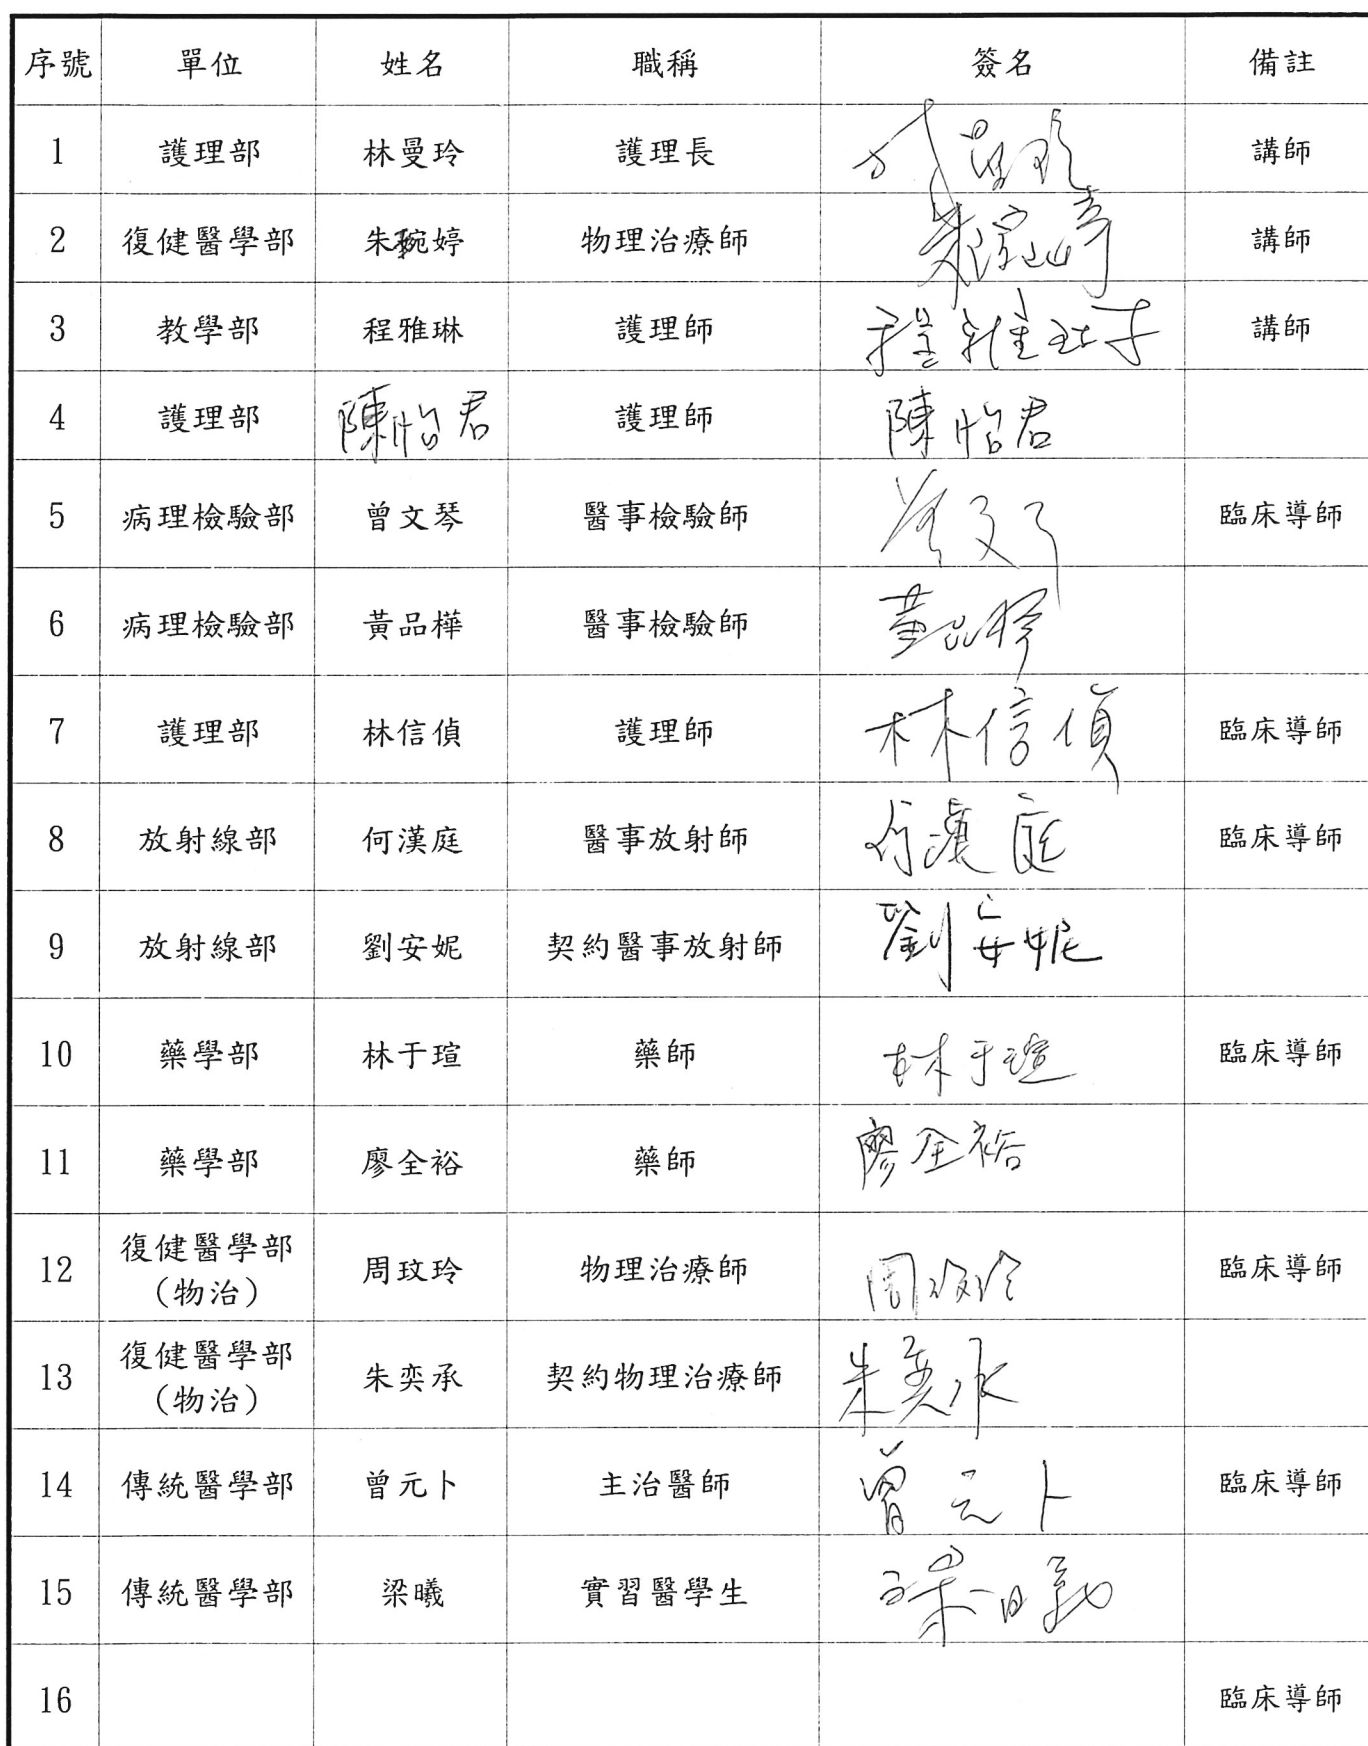 序號 單位 姓名 職稱 簽名 備註
1 護理部 林曼玲 護理長 林曼玲 講師
2 復健醫學部 朱琬婷 物理治療師 講師
3 教學部 程雅琳 護理師 程雅琳 講師
4 護理部 陳怡君 護理師 陳怡君
5 病理檢驗部 曾文琴 醫事檢驗師 臨床導師
6 病理檢驗部 黃品樺 醫事檢驗師 黃品樺
7 護理部 林信偵 護理師 林信偵 臨床導師
8 放射線部 何漢庭 醫事放射師 何漢庭 臨床導師
9 放射線部 劉安妮 契約醫事放射師 劉安妮
10 藥學部 林于瑄 藥師 林于瑄 臨床導師
11 藥學部 廖全裕 藥師 廖全裕
12 復健醫學部 周玟玲 物理治療師 周玟玲 臨床導師
(物治)
13 復健醫學部 朱奕承 契約物理治療師 朱奕承
(物治)
14 傳統醫學部 曾元卜 主治醫師 曾元卜 臨床導師
15 傳統醫學部 梁曦 實習醫學生 梁曦
16 臨床導師